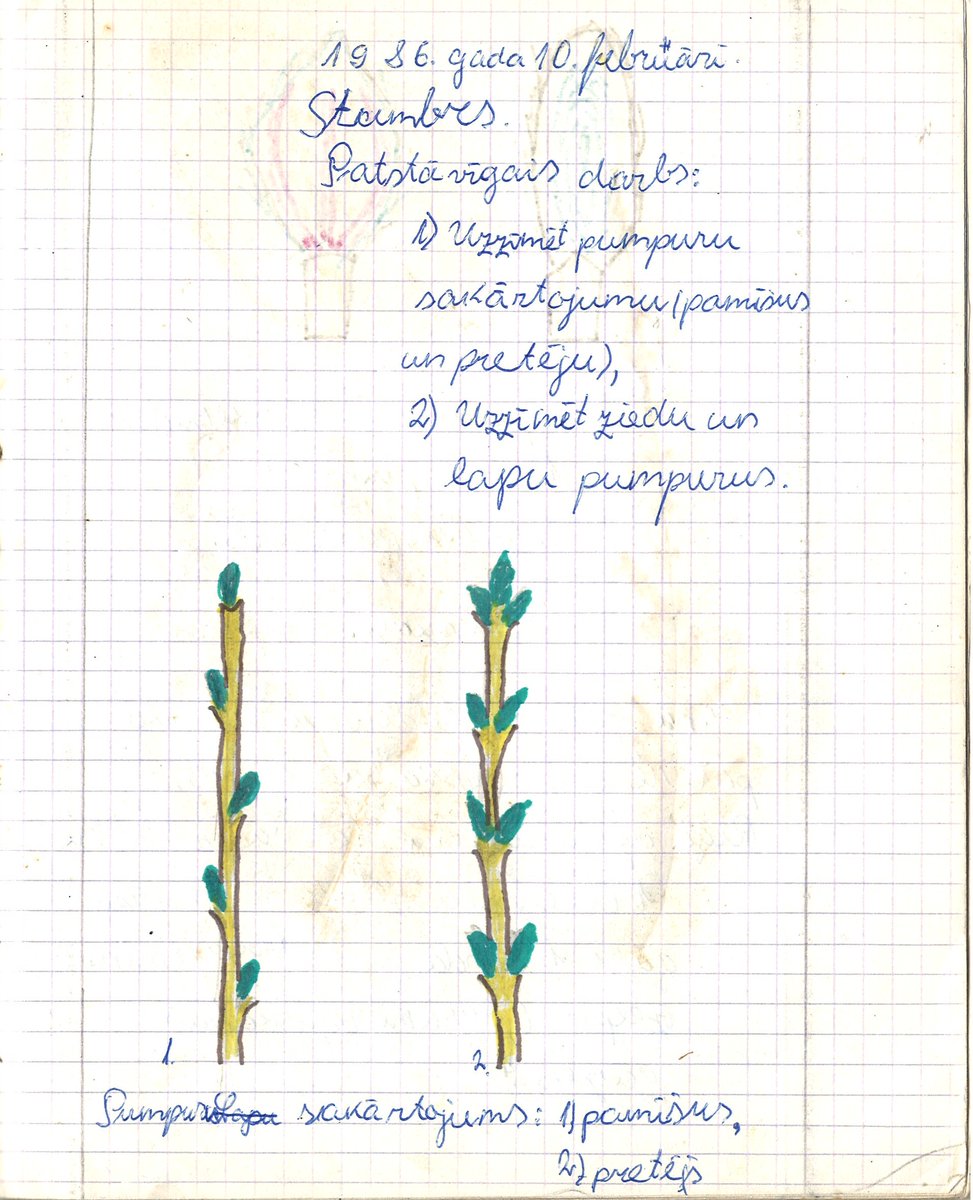 1986. gada 10. februārī.
Stumbrs.
Patstāvīgais darbs:
1) Uzzīmēt pumpuru
sakārtojumu (pamīšus
un pretēju),
2) Uzzīmēt ziedu un
lapu pumpurus.
1.
2.
Pumpuru Lapu sakārtojums: 1) pamīšus,
2) pretējs